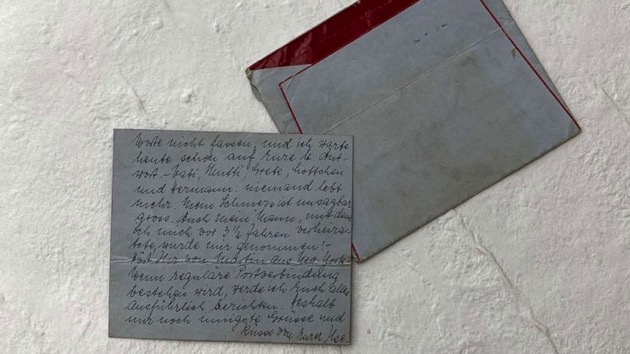 Worte nicht fassen, und ich warte
heute schon auf Eure l. Ant-
wort. - Vati, Mutti, Grete, Lottchen
und Hermann: niemand lebt
mehr. Mein Schmerz ist unsagbar
gross. Auch mein Mann, mit dem
ich mich vor 3½ Jahren verheira-
tete, wurde mir genommen! -
Hört Ihr von aus New-York?
Wenn reguläre Postverbindung
bestehen wird, werde ich Euch alles
ausführlich berichten. Deshalb
nur noch innigste Grüsse und
Küsse von Eurer Ilse.